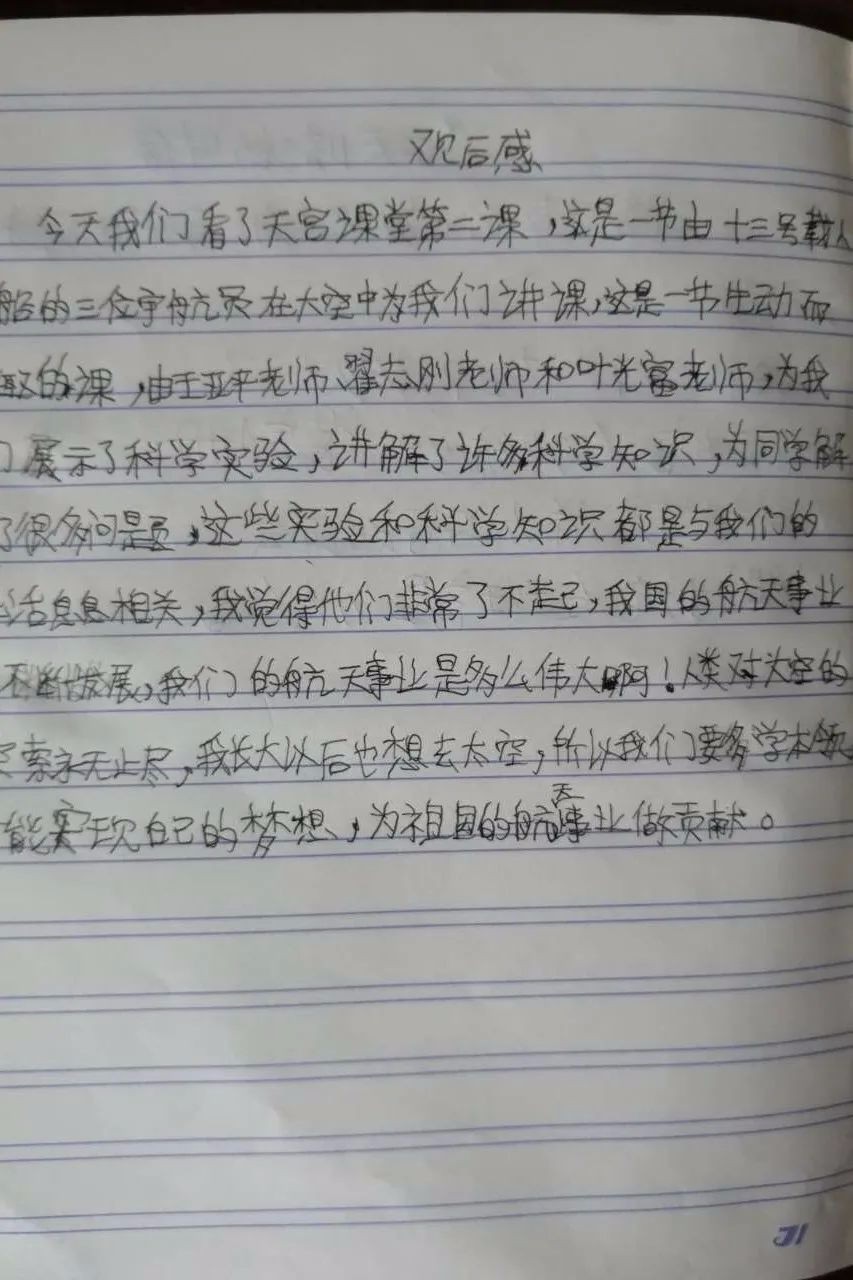 观后感
今天我们看了天宫课堂第二课，这是一节由十三号载人
船的三位宇航员在太空中为我们讲课，这是一节生动而
的课，由王亚平老师、翟志刚老师和叶光富老师，为我
们展示了科学实验，讲解了许多科学知识，为同学解
了很多问题，这些实验和科学知识都是与我们的
活息息相关，我觉得他们非常了不起，我国的航天事业
不断发展，我们的航天事业是多么伟大啊！人类对太空的
探索永无止尽，我长大以后也想去太空，所以我们要多学本领，
能实现自己的梦想，为祖国的航天事业做贡献。
J1